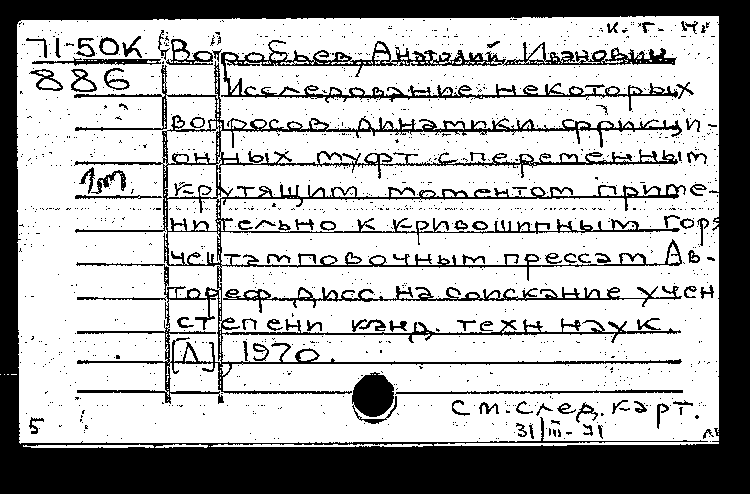 71-50К Воробьев, Анатолий Иванович.
886
Исследование некоторых
вопросов динамики фрикци-
онных муфт с переменным
крутящим моментом приме-
нительно к кривошипным горя
чештамповочным прессам Ав-
тореф. дисс. на соискание учен
степени канд. техн наук.
[Л], 1970.
См. след. карт.
5
31/III-71